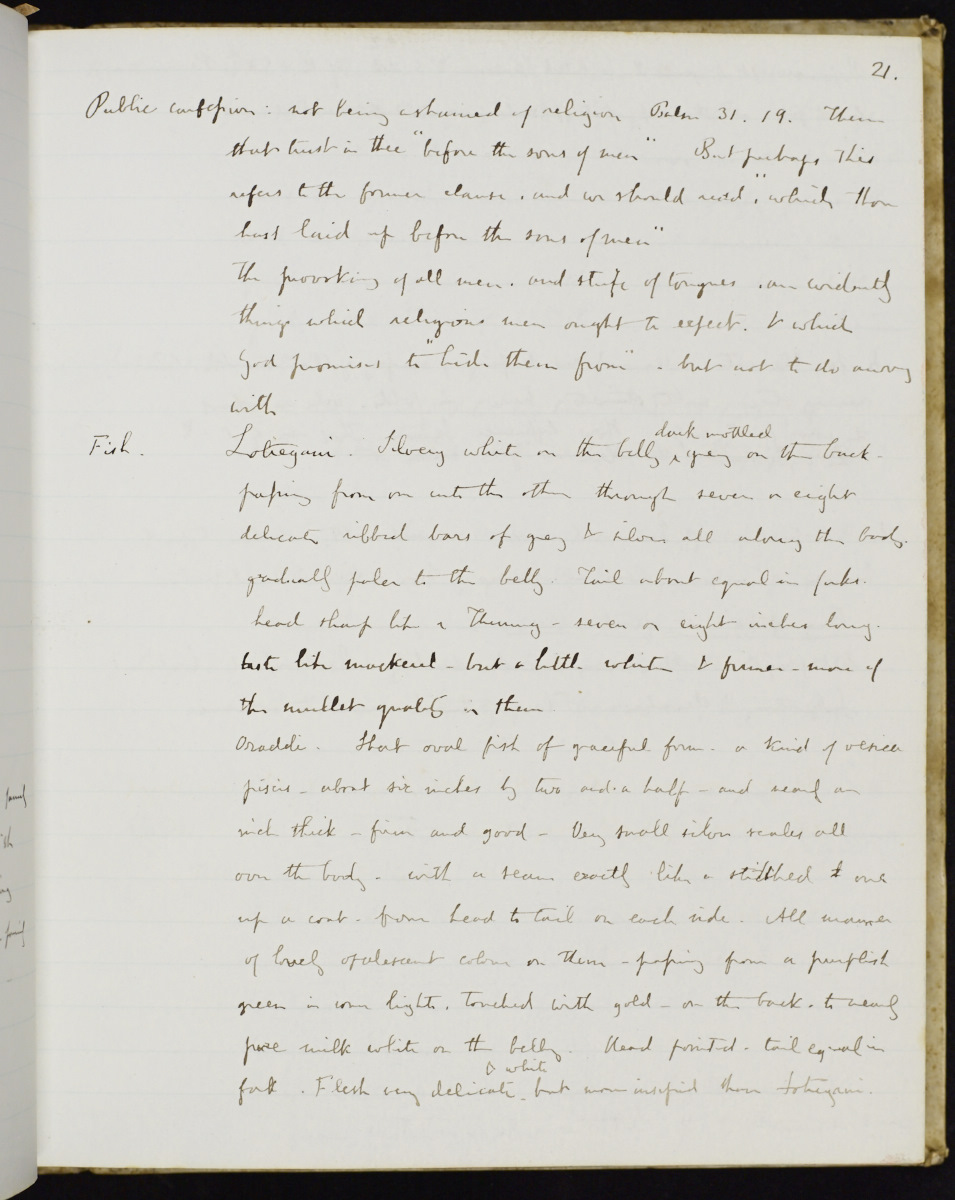 21.
Public confession: not being ashamed of religion Psalm 31. 19. Them
that trust in thee "before the sons of men" But perhaps this
refers to the former clause, and we should read, "which thou
hast laid up before the sons of men"
The provoking of all men, and strife of tongues, are evidently
things which religious men ought to expect. & which
God promises to "hide them from" - but not to do away
with
Fish. Lotregani. Silvery white on the belly, dark mottled grey on the back -
passing from one into the other through seven or eight
delicate ribbed bars of grey & silver all along the body.
gradually paler to the belly. Tail about equal in forks.
head sharp like a - seven or eight inches long.
taste like mackerel - but a little whiter & firmer - more of
the mullet quality in them
Oradde. Short oval fish of graceful form. a kind of vesica
piscis - about six inches by two and a half - and nearly an
inch thick - firm and good - Very small silver scales all
over the body - with a seam exactly like a stitched one
up a coat - from head to tail on each side. All manner
of lovely opalescent colour on them - passing from a purplish
green in some lights, touched with gold - on the back - to nearly
pure milk white on the belly. Head pointed - tail equal in
fork. Flesh very delicate & white but more insipid than Lotregani.
family